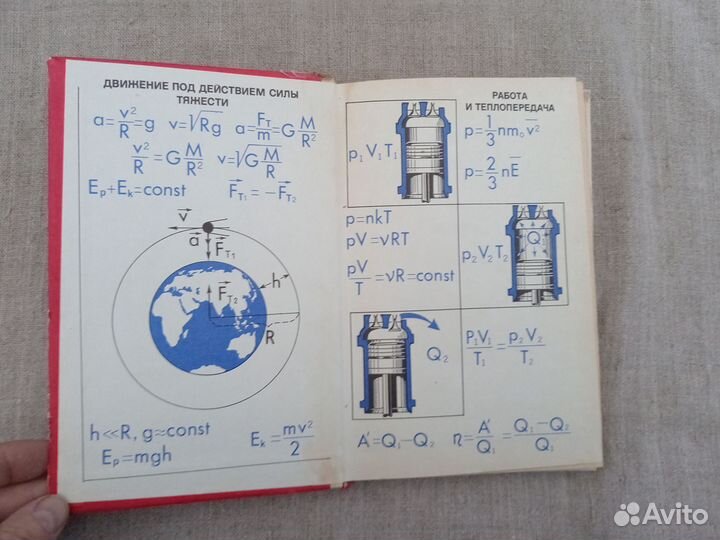 ДВИЖЕНИЕ ПОД ДЕЙСТВИЕМ СИЛЫ
ТЯЖЕСТИ
a=v²/R=g v=√Rg a=Fт/m=G M/R²
v²/R=G M/R² v=√(G M/R)
Eₚ+Eₖ=const F⃗т₁=−F⃗т₂
v⃗
a⃗ F⃗т₁
h
F⃗т₂
R
h≪R, g≈const
Eₚ=mgh
Eₖ=mv²/2
РАБОТА
И ТЕПЛОПЕРЕДАЧА
p₁V₁T₁
p=1/3 nm₀v̅²
p=2/3 nE̅
p=nkT
pV=νRT
pV/T=νR=const
p₂V₂T₂
Q₁
Q₂
P₁V₁/T₁=p₂V₂/T₂
A′=Q₁−Q₂ η=A′/Q₁=(Q₁−Q₂)/Q₁
Avito